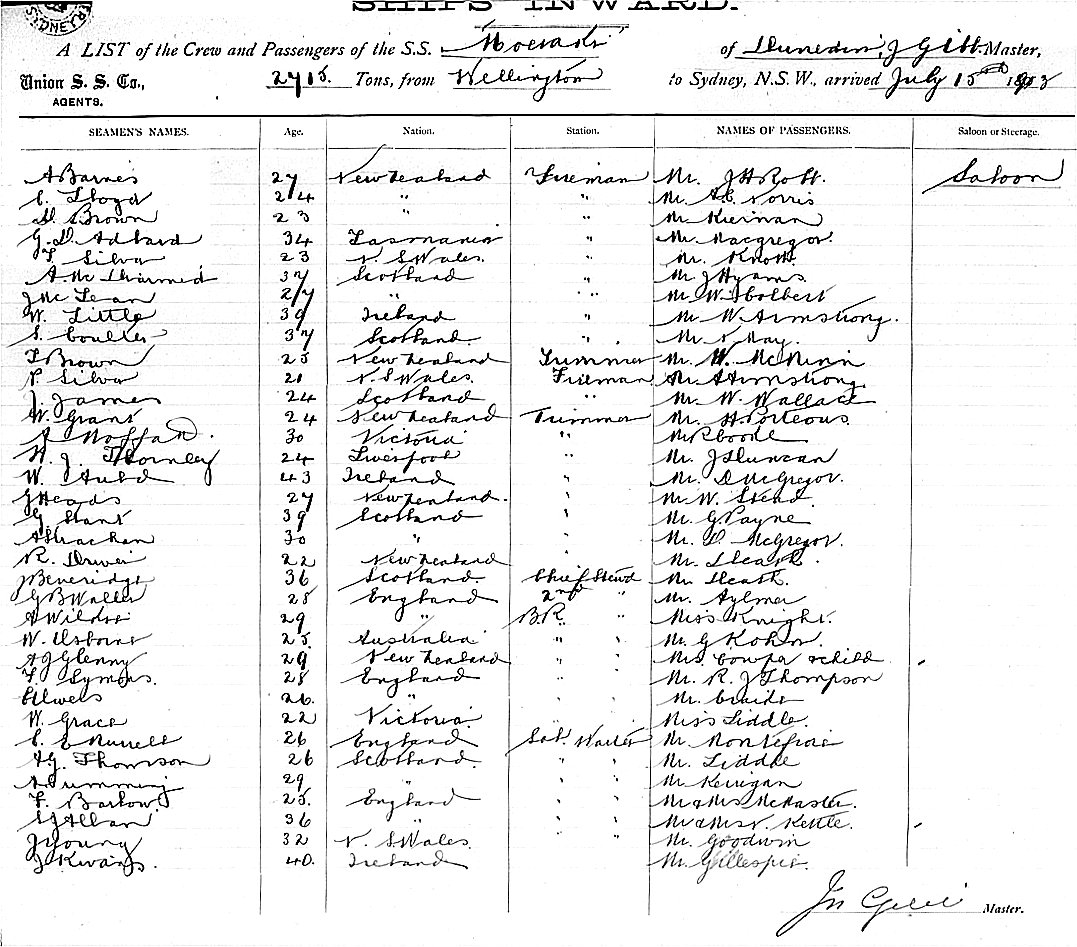 SHIPS INWARD.
SYDNEY
A LIST of the Crew and Passengers of the S.S. Moeraki of Dunedin, J Gibb Master,
Union S. S. Co., 2715. Tons, from Wellington to Sydney, N.S.W., arrived July 15th 1903
AGENTS.
SEAMEN'S NAMES. Age. Nation. Station. NAMES OF PASSENGERS. Saloon or Steerage.
A Barnes 27 New Zealand Fireman Mr. J H Rott. Saloon
C. Lloyd 24 " " Mr. A.C. Norris
M. Brown 23 " " Mr. Kiernan
G. D. Adbard 34 Tasmania " Mr. Macgregor.
F Silva 23 N. S Wales. " Mr. Knott.
A. Mc Diarmid 37 Scotland " Mr J Hyams.
J Mc Lean 27 " " Mr W. Holbert
W. Little 39 Ireland " Mr W Armstrong.
S. Coulter 37 Scotland " Mr N May.
T Brown 25 New Zealand Trimmer Mr. W. McMinn
N. Silva 21 N. S Wales. Fireman Mr. A Armstrong.
J. James 24 Scotland " Mr. W. Wallace
W. Grant 24 New Zealand Trimmer Mr. H. Porteous.
30 Victoria " Mr R Goode
W. J. Thornley 24 Liverpool " Mr. J Duncan
W. Auld 43 Ireland " Mr. D McGregor.
J Heads 27 New Zealand. " Mr W. Stead
G. Stant 39 Scotland " Mr. G Payne
A Strachan 30 " " Mr. D. McGregor.
R. Driver 22 New Zealand " Mr. Heath.
J Beveridge 36 Scotland. Chief Stewd Mr Heath.
G B Waller 28 England 2nd " Mr. Aylmer
A Wildsi 29 " B.R. " Miss Knight.
W. Osborne 25. Australia " " Mr. G Kohn.
A J Glenny 29 New Zealand " " Mrs. Cowpa & child
F. Symes. 28 England " " Mr. R. J Thompson
Elwers 26. " " " Mr.
W. Grace 22 Victoria " " Miss Liddle.
C. E Murrell 26 England Sal. Waiter Mr Montefiore
A G. Thomson 26 Scotland " " Mr. Liddle
A Cumming 29 " " " Mr Kerrigan
F. Barlow 25. England " " Mr & Mrs McMaster.
Allan 36 " " " Mr & Mrs N. Kettle.
J Young 32 N. S Wales. Mr. Goodwin
J Kwans. 40. Ireland Mr. Gillespie.
Jn Gibb Master.